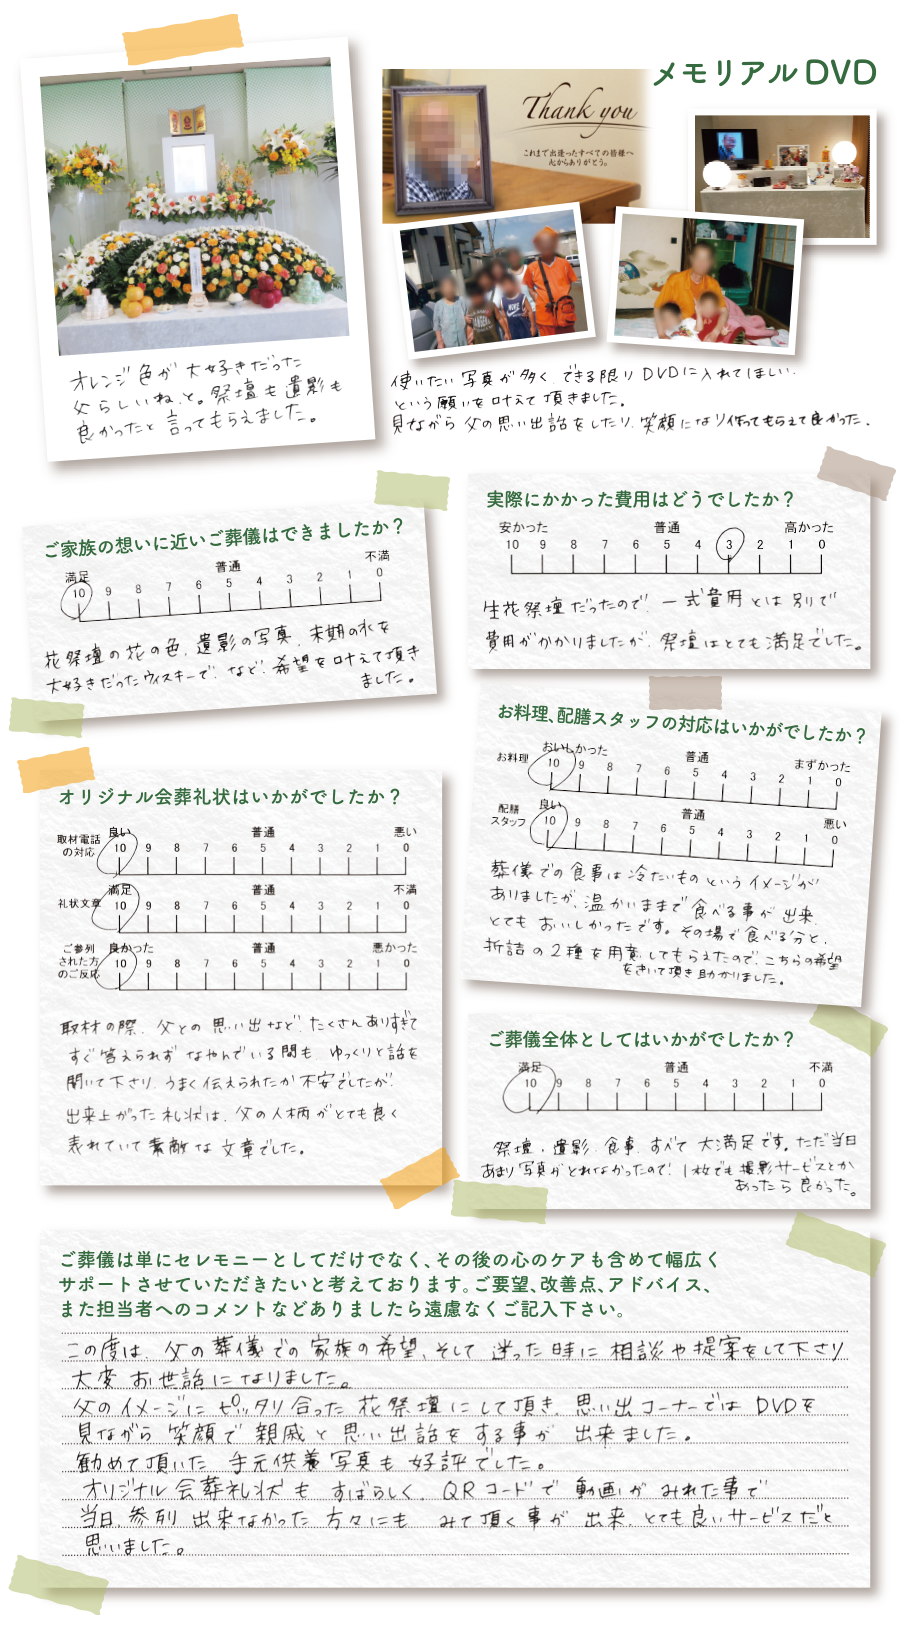 メモリアルDVD
Thank you
これまで出逢ったすべての皆様へ
心からありがとう。
オレンジ色が大好きだった
父らしいね、と。祭壇も遺影も
良かったと言ってもらえました。
使いたい写真が多く、できる限りDVDに入れてほしい、
という願いを叶えて頂きました。
見ながら父の思い出話をしたり、笑顔になり作ってもらえて良かった。
ご家族の想いに近いご葬儀はできましたか？
満足 普通 不満
10 9 8 7 6 5 4 3 2 1 0
花祭壇の花の色、遺影の写真、末期の水を
大好きだったウィスキーで、など、希望を叶えて頂き
ました。
実際にかかった費用はどうでしたか？
安かった 普通 高かった
10 9 8 7 6 5 4 3 2 1 0
生花祭壇だったので、一式費用とは別りで
費用がかかりましたが、祭壇はとても満足でした。
お料理、配膳スタッフの対応はいかがでしたか？
おいしかった 普通 まずかった
お料理 10 9 8 7 6 5 4 3 2 1 0
良い 普通 悪い
配膳
スタッフ 10 9 8 7 6 5 4 3 2 1 0
葬儀での食事は冷たいものというイメージが
ありましたが、温かいままで食べる事が出来、
とてもおいしかったです。その場で食べる分と、
折詰の2種を用意してもらえたので、こちらの希望
をきいて頂き助かりました。
オリジナル会葬礼状はいかがでしたか？
良い 普通 悪い
取材電話
の対応 10 9 8 7 6 5 4 3 2 1 0
満足 普通 不満
礼状文章 10 9 8 7 6 5 4 3 2 1 0
良かった 普通 悪かった
ご参列
された方
のご反応 10 9 8 7 6 5 4 3 2 1 0
取材の際、父との思い出など、たくさんありすぎて
すぐ答えられずなやんでいる間も ゆっくりと話を
聞いて下さり、うまく伝えられたか不安でしたが、
出来上がった礼状は、父の人柄がとても良く
表れていて素敵な文章でした。
ご葬儀全体としてはいかがでしたか？
満足 普通 不満
10 9 8 7 6 5 4 3 2 1 0
祭壇、遺影、食事、すべて大満足です。ただ当日
あまり写真がとれなかったので、1枚でも撮影サービスとか
あったら良かった。
ご葬儀は単にセレモニーとしてだけでなく、その後の心のケアも含めて幅広く
サポートさせていただきたいと考えております。ご要望、改善点、アドバイス、
また担当者へのコメントなどありましたら遠慮なくご記入下さい。
この度は、父の葬儀での家族の希望、そして迷った時に相談や提案をして下さり
大変お世話になりました。
父のイメージにピッタリ合った花祭壇にして頂き、思い出コーナーではDVDを
見ながら笑顔で親戚と思い出話をする事が出来ました。
勧めて頂いた手元供養写真も好評でした。
オリジナル会葬礼状もすばらしく、QRコードで動画がみれた事で
当日、参列出来なかった方々にも みて頂く事が出来、とても良いサービスだと
思いました。